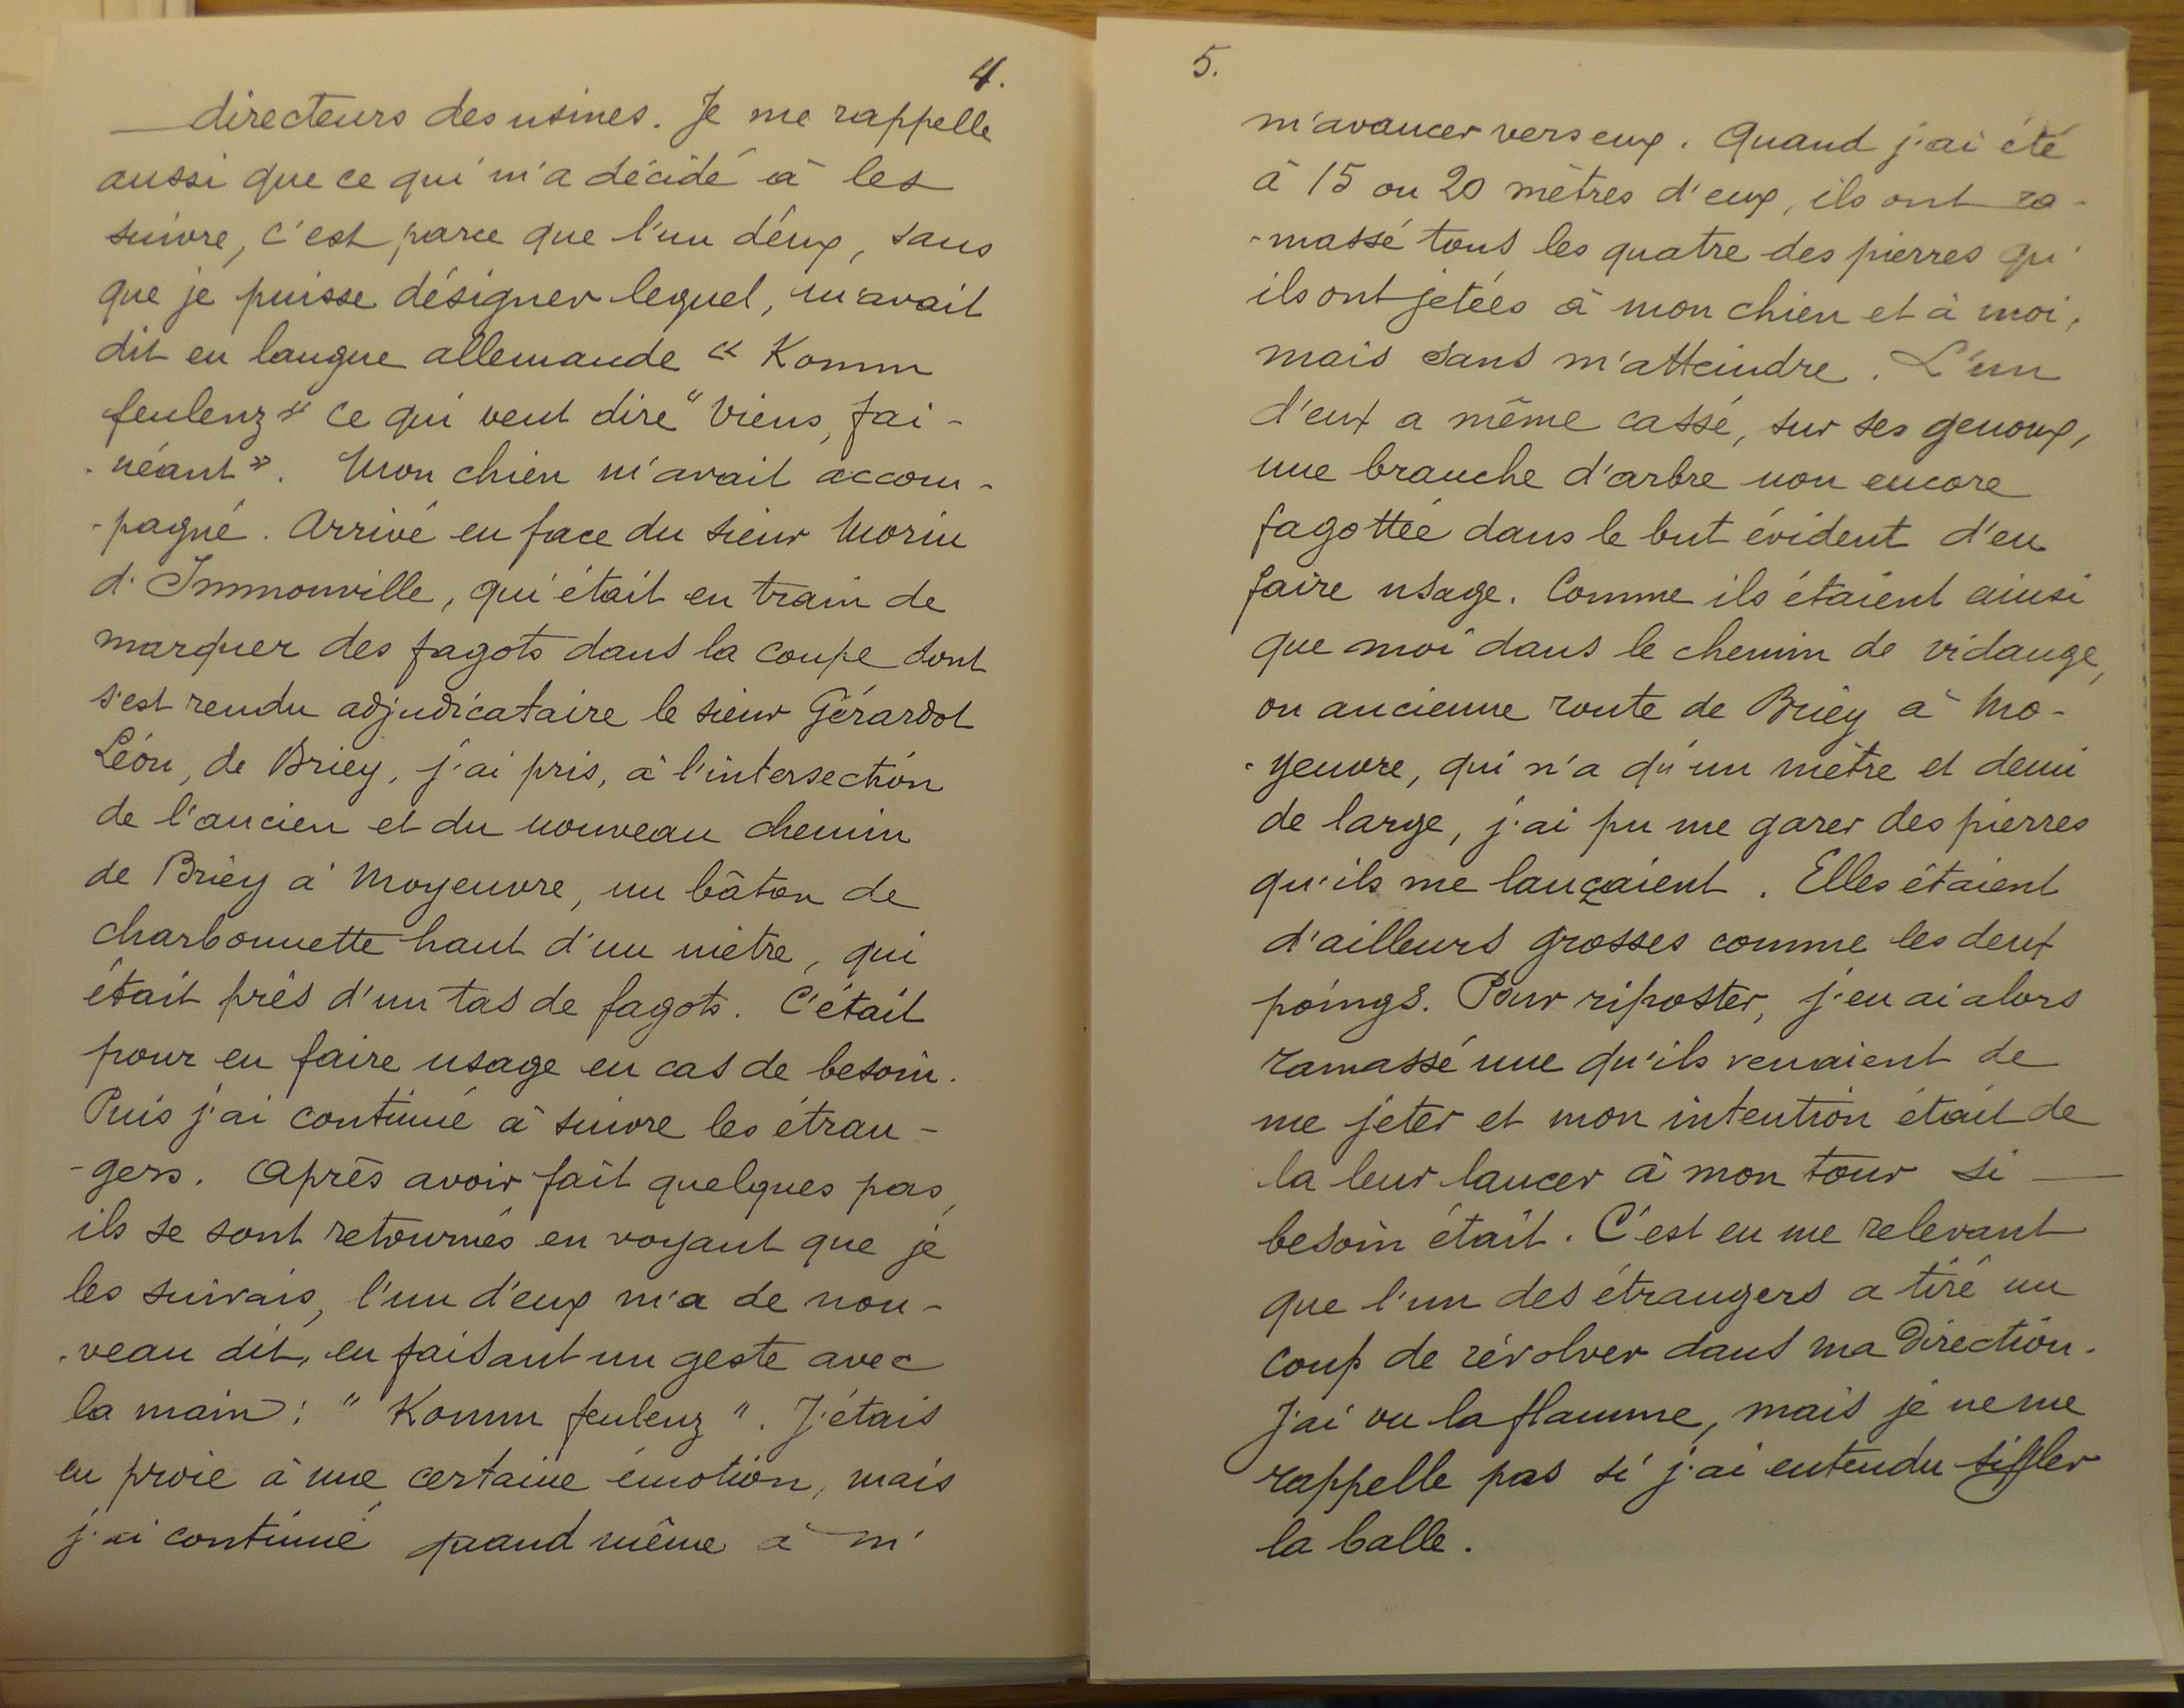 4.
directeurs des usines. Je me rappelle
aussi que ce qui m'a décidé à les
suivre, c'est parce que l'un d'eux, sans
que je puisse désigner lequel, m'avait
dit en langue allemande « Komm
feulenz » ce qui veut dire " viens, fai-
-néant ». Mon chien m'avait accom-
-pagné. Arrivé en face du sieur Morin
d'Immonville, qui était en train de
marquer des fagots dans la coupe dont
s'est rendu adjudicataire le sieur Gérardot
Léon, de Briey, j'ai pris, à l'intersection
de l'ancien et du nouveau chemin
de Briey à Moyeuvre, un bâton de
charbonnette haut d'un mètre, qui
était près d'un tas de fagots. C'était
pour en faire usage en cas de besoin.
Puis j'ai continué à suivre les étran-
-gers. Après avoir fait quelques pas,
ils se sont retournés en voyant que je
les suivais, l'un d'eux m'a de nou-
-veau dit, en faisant un geste avec
la main : " Komm feulenz ". J'étais
en proie à une certaine émotion, mais
j'ai continué quand même à m'
5.
m'avancer vers eux. Quand j'ai été
à 15 ou 20 mètres d'eux, ils ont ra-
-massé tous les quatre des pierres qu'
ils ont jetées à mon chien et à moi,
mais sans m'atteindre. L'un
d'eux a même cassé, sur ses genoux,
une branche d'arbre non encore
fagottée dans le but évident d'en
faire usage. Comme ils étaient ainsi
que moi dans le chemin de vidange,
ou ancienne route de Briey à Mo-
-yeuvre, qui n'a qu'un mètre et demi
de large, j'ai pu me garer des pierres
qu'ils me lançaient. Elles étaient
d'ailleurs grosses comme les deux
poings. Pour riposter, j'en ai alors
ramassé une qu'ils venaient de
me jeter et mon intention était de
la leur lancer à mon tour si
besoin était. C'est en me relevant
que l'un des étrangers a tiré un
coup de révolver dans ma direction.
J'ai vu la flamme, mais je ne me
rappelle pas si j'ai entendu siffler
la balle.